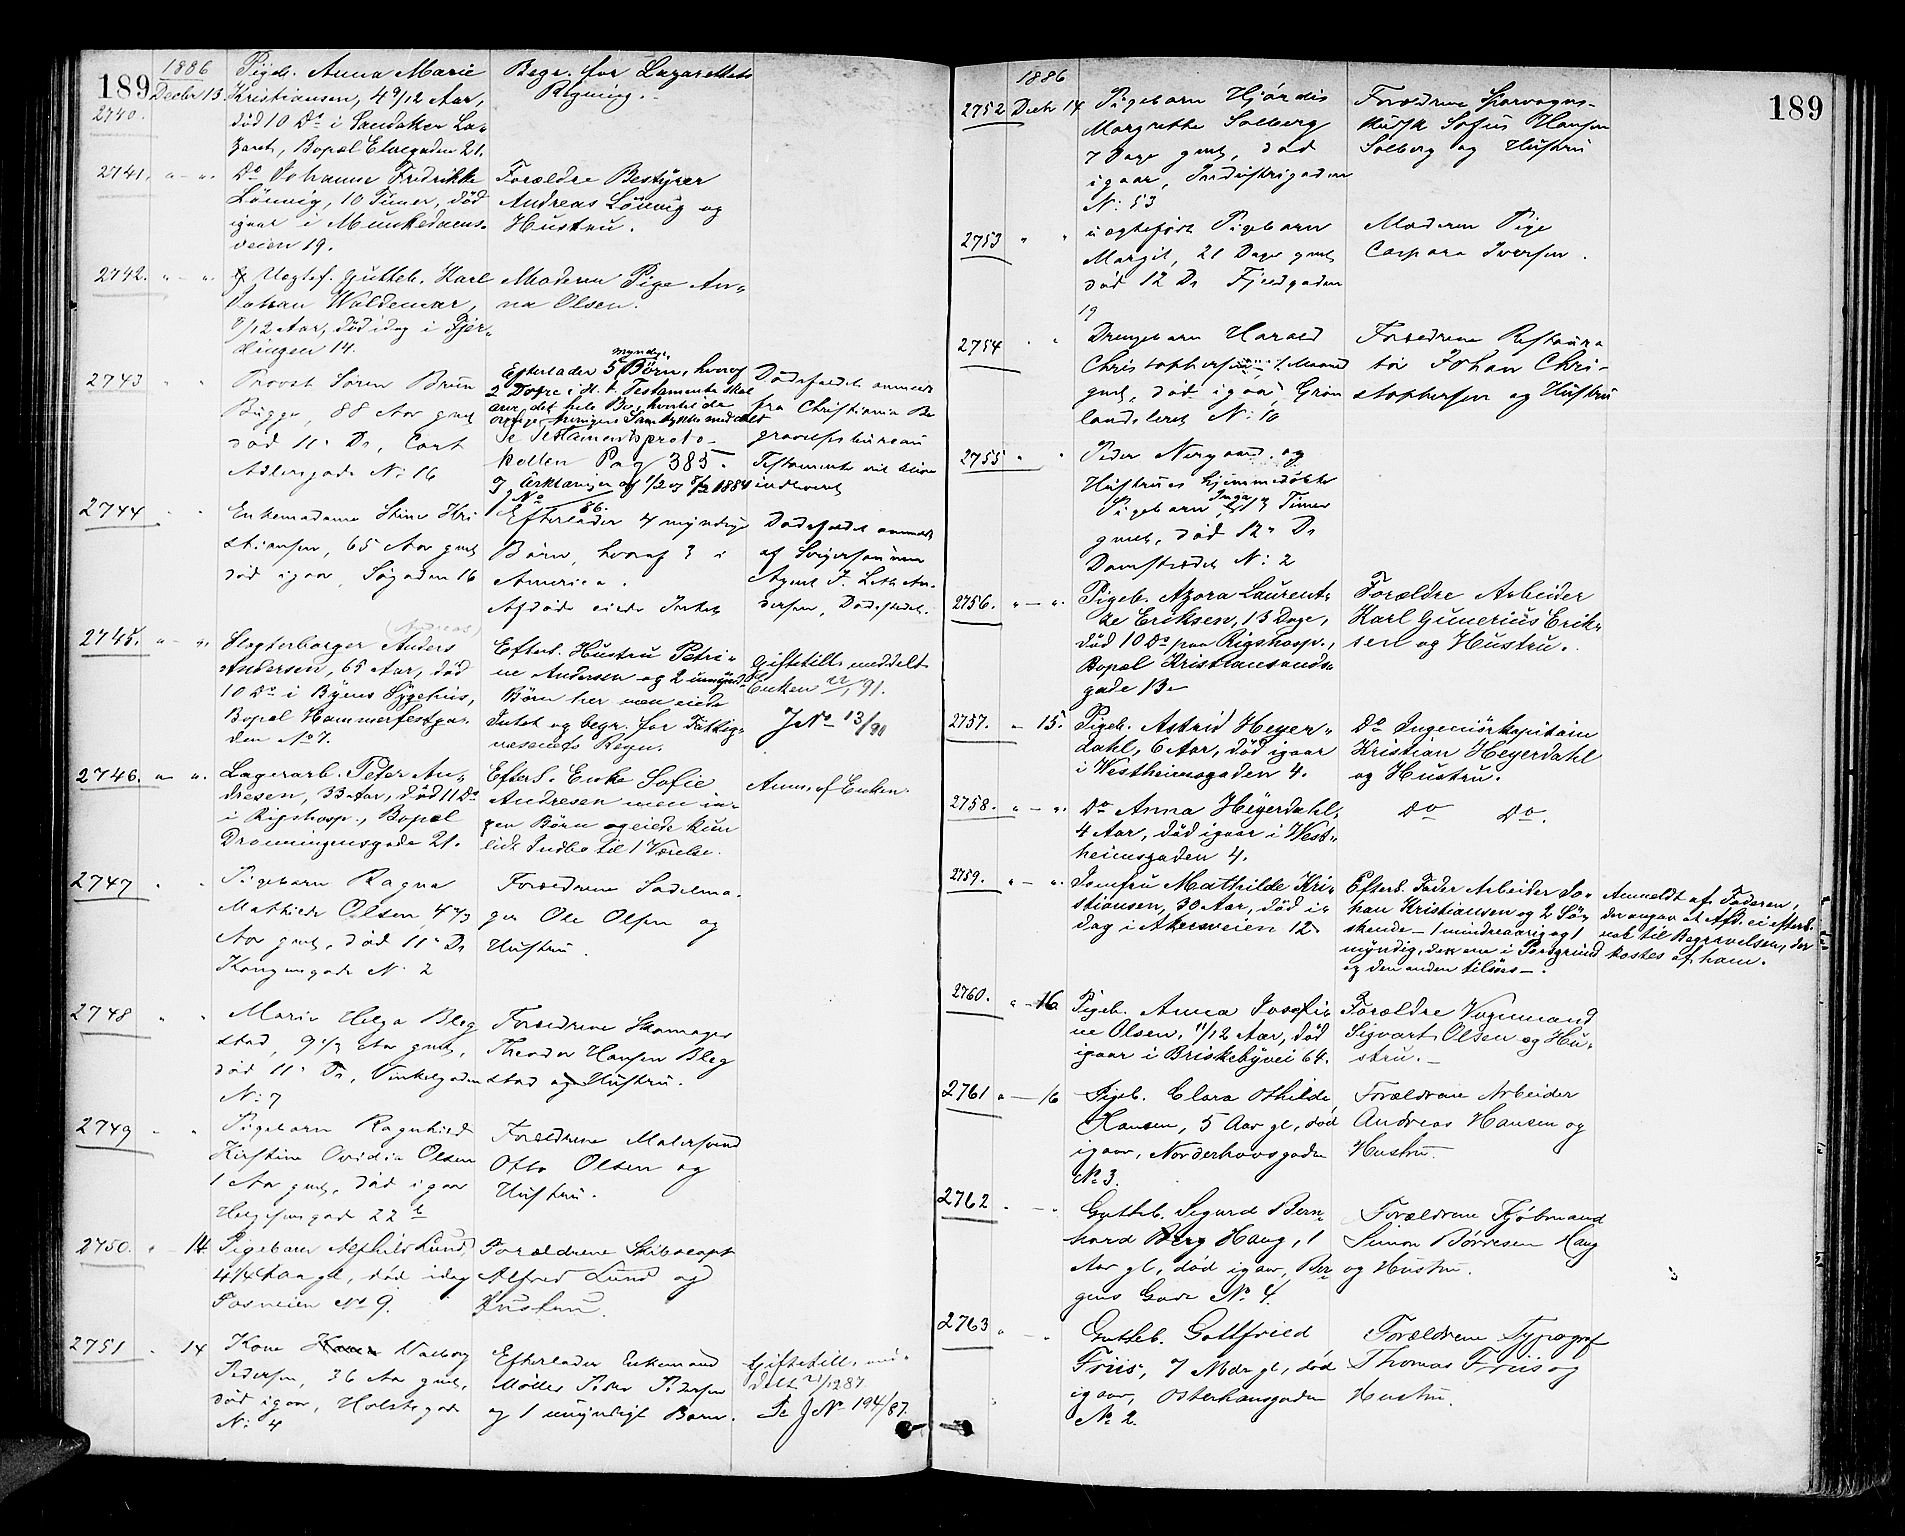 189
1886
2740. Decbr 13
Pigeb. Anna Marie
Kristiansen, 4 9/12 Aar,
död 10 Ds i Sandaker La-
zaret, Bopæl Elvegaden 21.
Begr. for Lazarettets
Regning.
2741. " - "
Do Johanne Fredrikke
Lönvig, 10 Timer, död
igaar i Munkedams-
veien 19.
Forældre Bestyrer
Andreas Lönvig og
Hustru.
2742. " - "
Uægtef. Gutteb. Karl
Johan Waldemar,
/12 Aar, död idag i Fjer-
dingen 14.
Moderen Pige An-
na Olsen.
2743 " "
Provst Sören Brun
Bugge, 88 Aar gml
död 11 Ds, Cort
Adlersgade N: 16
Efterlader 5 myndige Börn, hvoraf
2 Døtre i H. t. Testamente skal
arve det hele Bo, hvortil de
övrige Arvinger Samtykke meddelt
Se Testamentsproto-
kollen Pag 385.
J No 86.
Dødsfaldet anmeldt
fra Christiania Be
gravelsesbureau
Testamente vil blive
indleveret
2744 " "
Enkemadame Stine Kri
stiansen, 65 Aar gml
död igaar, Søgaden 16
Efterlader 4 myndige
Börn, hvoraf 3 i
America.
Afdøde eiede Intet
Dødsfaldet anmeldt
af Svigersønnen
Agent J. Leth An-
dersen, Dødsstedet.
2745. " - "
(Andreas)
Slagterborger Anders
Andersen, 65 Aar, död
10 Ds i Byens Sygehus,
Bopæl Hammerfestga-
den No 7.
Efterl. Hustru Petri-
ne Andersen og 2 umynd.
Börn her men eiede
Intet og begr. for Fattig-
væsenets Regn.
Giftetill. meddelt
Enken 22/1 91.
J No 13/91
2746. " - "
Lagerarb. Peter An-
dresen, 33 Aar, död 11 Ds
i Rigshosp., Bopæl
Dronningensgade 21.
Efterl. Enke Sofie
Andresen men in-
gen Börn og eiede kun
lidt Indbo til 1 Værelse.
Anm. af Enken.
2747 " "
Pigebarn Ragna
Mathilde Olsen, 4 1/2
Aar gml, død 11 Ds
Kongensgade N: 2
Forældrene Sadelma-
ger Ole Olsen og
Hustru.
2748 " "
Marie Helga Bleg
stad, 9 1/2 Aar gml,
død 11 Ds, Vinkelgaden
N: 7
Forældrene Skomager
Theodor Hansen Bleg
stad og Hustru.
2749 " "
Pigebarn Ragnhild
Kirstine Ovidia Olsen
1 Aar gml, død igaar
Helgesensgade 22 b
Forældrene Malersvend
Otto Olsen og
Hustru.
2750. " - 14
Pigebarn Alfhild Lund,
4 1/4 Aar gl, død idag
Fosveien No 9.
Forældrene Skibscapt
Alfred Lund og
Hustru.
2751 " 14
Kone Valborg
Pedersen, 36 Aar gml,
død igaar, Holstsgade
N: 4
Efterlader Enkemand
Møller Peder Pedersen
og 1 umyndigt Barn.
Giftetill. med-
delt 21/12 87
Se J No 194/87.
189
1886
2752 Decbr 14
Pigebarn Hjördis
Margrethe Solberg
7 Dage gml, død
igaar, Industrigaden
N: 53
Forældrene Sporvogns-
kudsk Sofus Hansen
Solberg og Hustru
2753 " "
uægteført Pigebarn
Margit, 21 Dage gml
død 12 Ds Fjeldgaden
19
Moderen Pige
Caspara Iversen.
2754 " "
Drengebarn Harald
Christophersen, 1/2 Maaned
gml, død igaar, Grøn
landsleret N: 16
Forældrene Restaura
tør Johan Chri-
stophersen og Hustru
2755 " "
Peder Nergaard og
Hustrues hjemmedøbte
Pigebarn, Inga, 17 Timer
gml, død 12 Ds
Damstrædet N: 2
2756. " - "
Pigeb. Azora Laurent-
ze Eriksen, 13 Dage,
död 10 Ds paa Rigshosp.,
Bopæl Kristiansands-
gade 13.
Forældre Arbeider
Karl Gunerius Erik-
sen og Hustru.
2757. " - 15.
Pigeb. Astrid Heyer-
dahl, 6 Aar, död igaar
i Westheimsgaden 4.
Do Ingeniörkapitain
Kristian Heyerdahl
og Hustru.
2758. " - "
Do Anna Heyerdahl,
4 Aar, död igaar i West-
heimsgaden 4.
Do Do.
2759. " - "
Jomfru Mathilde Kri-
stiansen, 30 Aar, död i
dag i Akersveien 12
Efterl. Fader Arbeider Jo-
han Kristiansen og 2 Sö-
skende - 1 mindreaarig og 1
myndig, den ene i Porsgrund
og den anden tilsøs -.
Anmeldt af Faderen,
der angav at Afd. ei efterl.
nok til Begravelsen, der
kostes af ham.
2760. " - 16
Pigeb. Anna Josefi-
ne Olsen, 11/12 Aar, död
igaar i Briskebyvei 64.
Forældre Vognmand
Sigvart Olsen og Hu-
stru.
2761 " - 16
Pigeb. Clara Othilde
Hansen, 5 Aar gl, død
igaar, Norderhovsgaden
No 3.
Forældrene Arbeider
Andreas Hansen og
Hustru.
2762 - "
Gutteb. Sigurd Bern-
hard Berg Haug, 1
Aar gl, død igaar, Ber-
gens Gade No 4.
Forældrene Kjøbmand
Simon Børresen Haug
og Hustru.
2763 " - "
Gutteb. Gottfried
Friis, 7 Mdr gl, død
igaar, Osterhausgaden
No 2.
Forældrene Typograf
Thomas Friis og
Hustru.